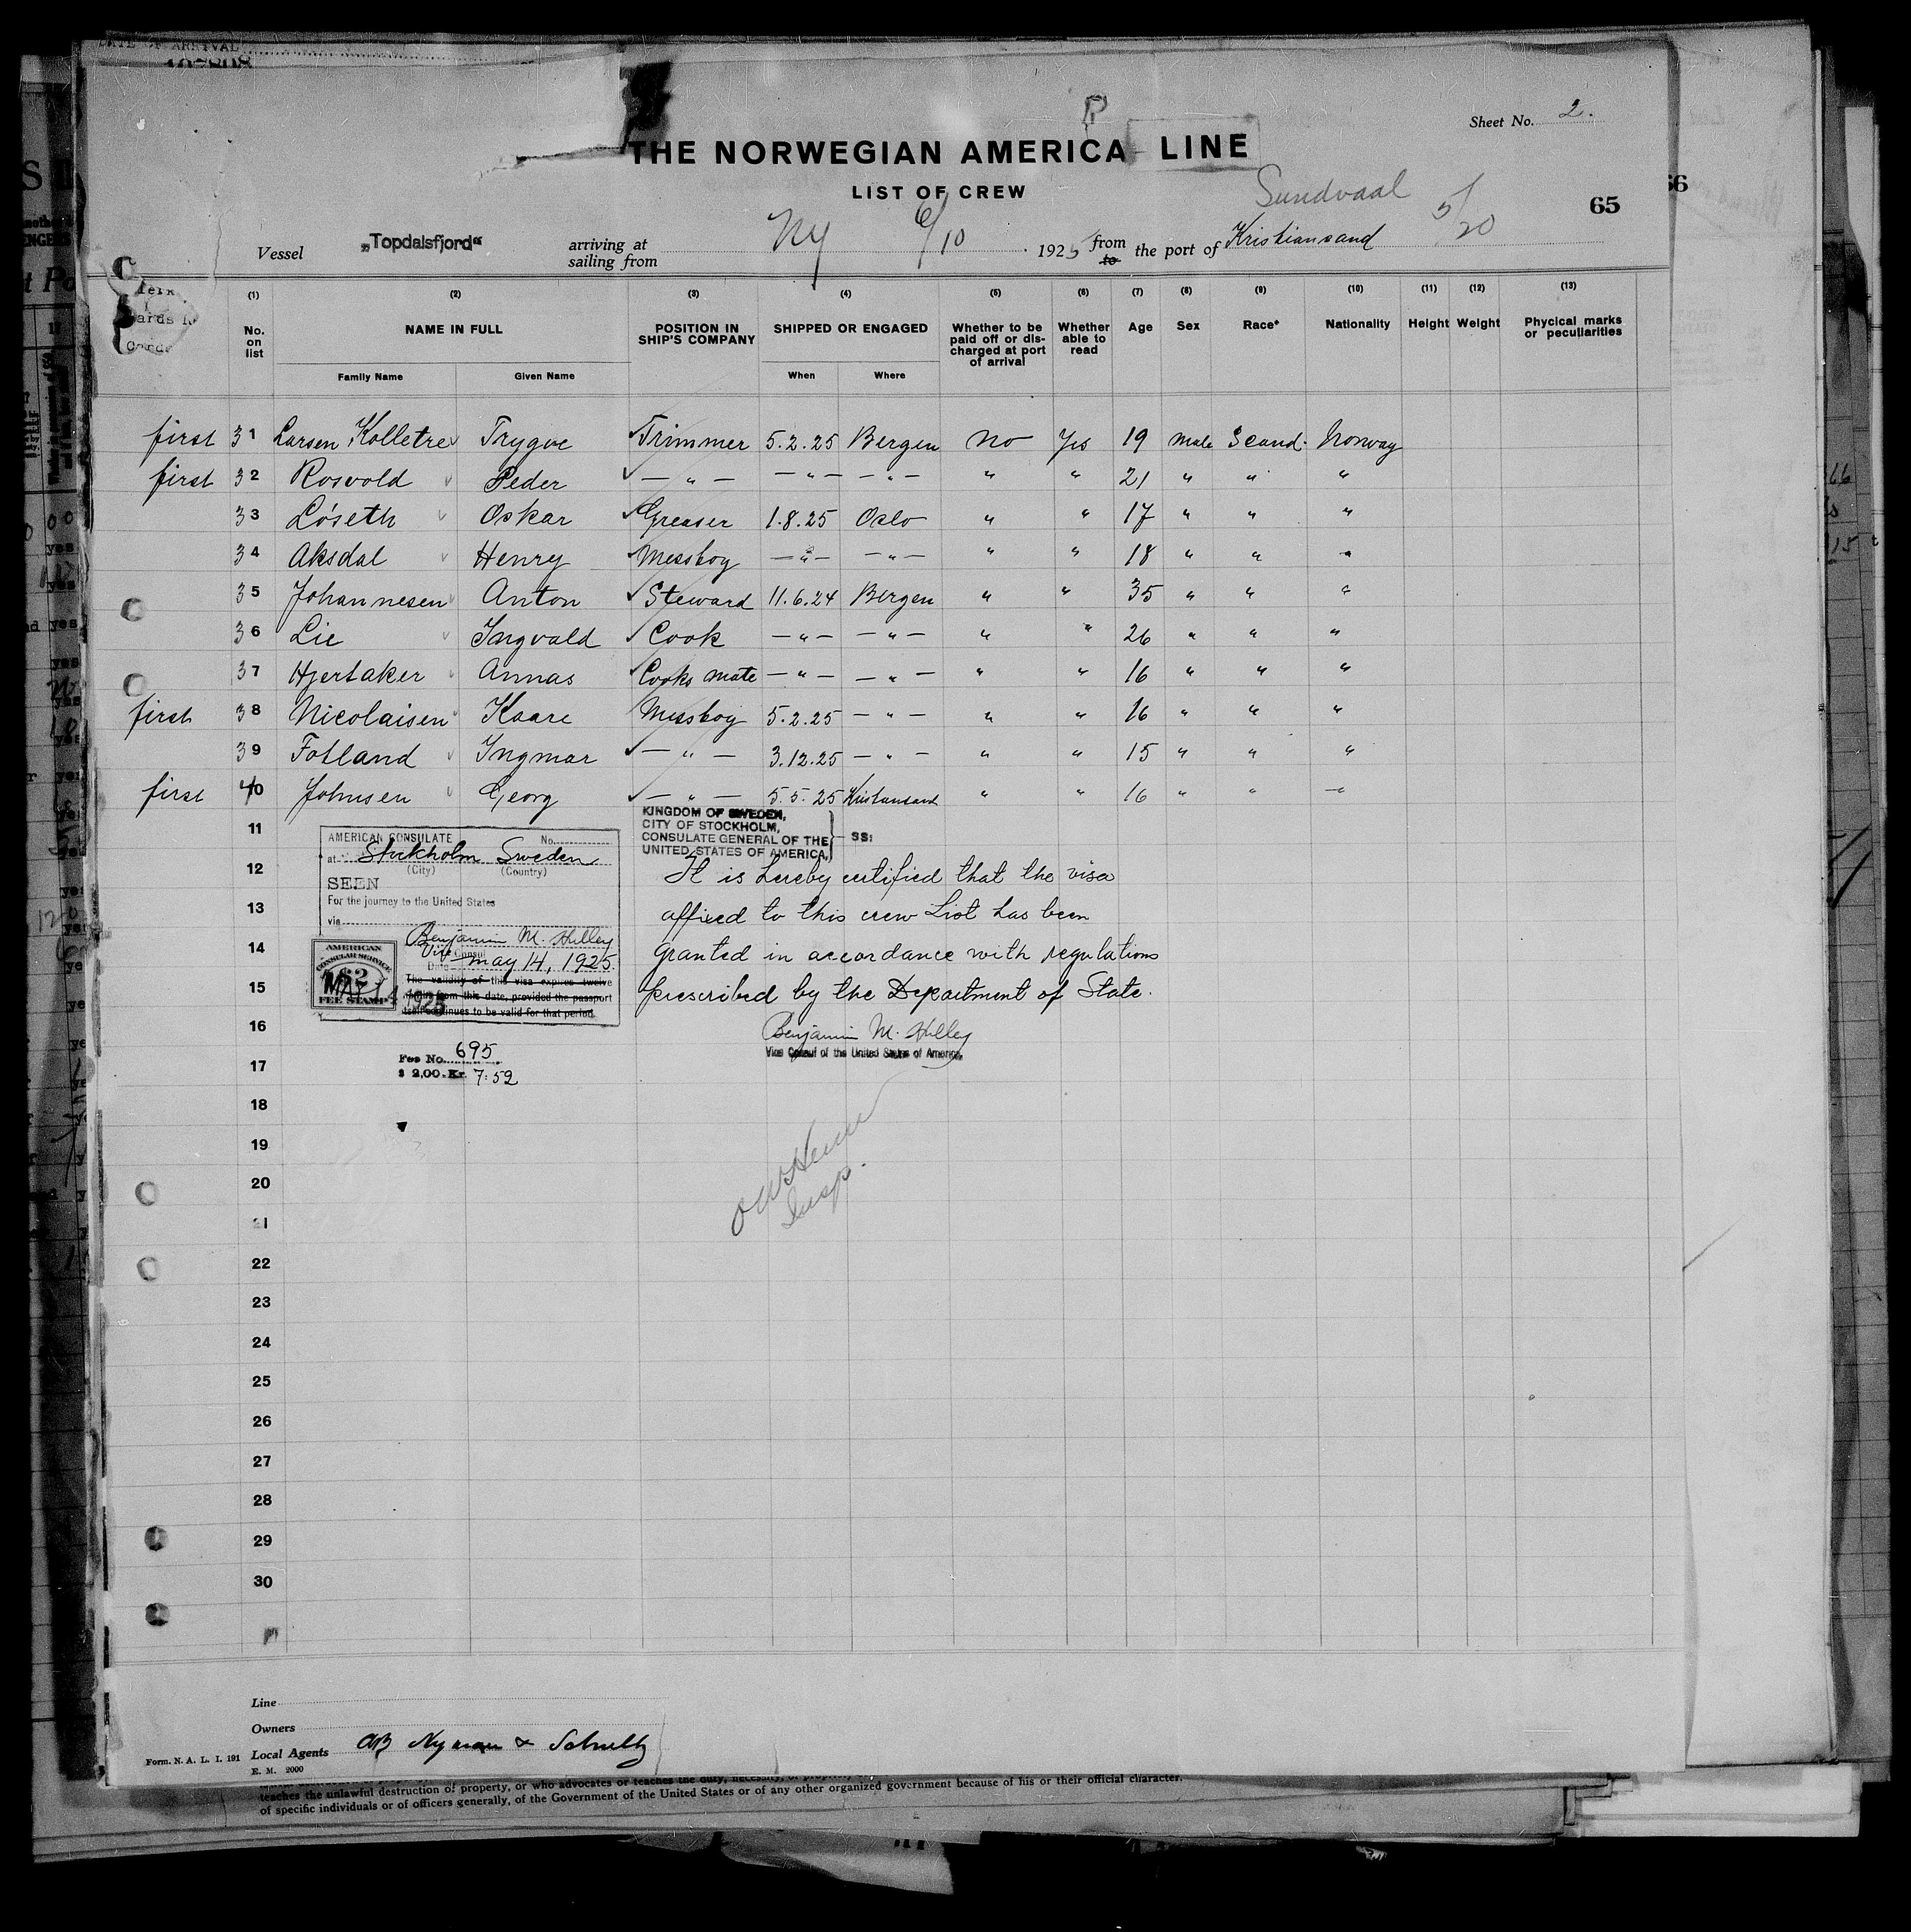 DATE OF ARRIVAL
107808
Sheet No. 2.
THE NORWEGIAN AMERICA LINE
LIST OF CREW
Sundvaal
65
66
Vessel „Topdalsfjord“ arriving at sailing from NY 6/10 1925 from to the port of Kristiansand 5/20
(1) (2) (3) (4) (5) (6) (7) (8) (9) (10) (11) (12) (13)
No. on list NAME IN FULL POSITION IN SHIP'S COMPANY SHIPPED OR ENGAGED Whether to be paid off or discharged at port of arrival Whether able to read Age Sex Race* Nationality Height Weight Phycical marks or peculiarities
Family Name Given Name When Where
first 31 Larsen Kolletre Trygve Trimmer 5.2.25 Bergen No Yes 19 male Scand. Norway
first 32 Rosvold Peder — " — — " — — " — " " 21 " " "
33 Lóseth Oskar Greaser 1.8.25 Oslo " " 17 " " "
34 Aksdal Henry Messboy — " — — " — " " 18 " " "
35 Johannesen Anton Steward 11.6.24 Bergen " " 35 " " "
36 Lie Ingvald Cook — " — — " — " " 26 " " "
37 Hjertaker Annas Cooks mate — " — — " — " " 16 " " "
first 38 Nicolaisen Kaare Messboy 5.2.25 — " — " " 16 " " "
39 Fotland Ingmar — " — 3.12.25 — " — " " 15 " " "
first 40 Johnsen Georg — " — 5.5.25 Kristiansand " " 16 " " "
11
12
13
14
15
16
17
18
19
20
21
22
23
24
25
26
27
28
29
30
AMERICAN CONSULATE No.
at Stockholm Sweden
(City) (Country)
SEEN
For the journey to the United States
via
Benjamin M. Hulley
Vice Consul
Date May 14, 1925.
The validity of this visa expires twelve
months from this date, provided the passport
itself continues to be valid for that period.
AMERICAN
CONSULAR SERVICE
$2
FEE STAMP
MAY 14 1925
Fee No. 695
$ 2,00. Kr. 7:52
KINGDOM OF SWEDEN,
CITY OF STOCKHOLM,
CONSULATE GENERAL OF THE
UNITED STATES OF AMERICA,
SS:
It is hereby certified that the visa
affixed to this crew List has been
granted in accordance with regulations
prescribed by the Department of State.
Benjamin M. Hulley
Vice Consul of the United States of America.
Insp.
Line
Owners
Local Agents AB Nyman & Schultz
Form. N. A. L. I. 191
E. M. 2000
teaches the unlawful destruction of property, or who advocates or teaches the duty, necessity, or
of specific individuals or of officers generally, of the Government of the United States or of any other organized government because of his or their official character.